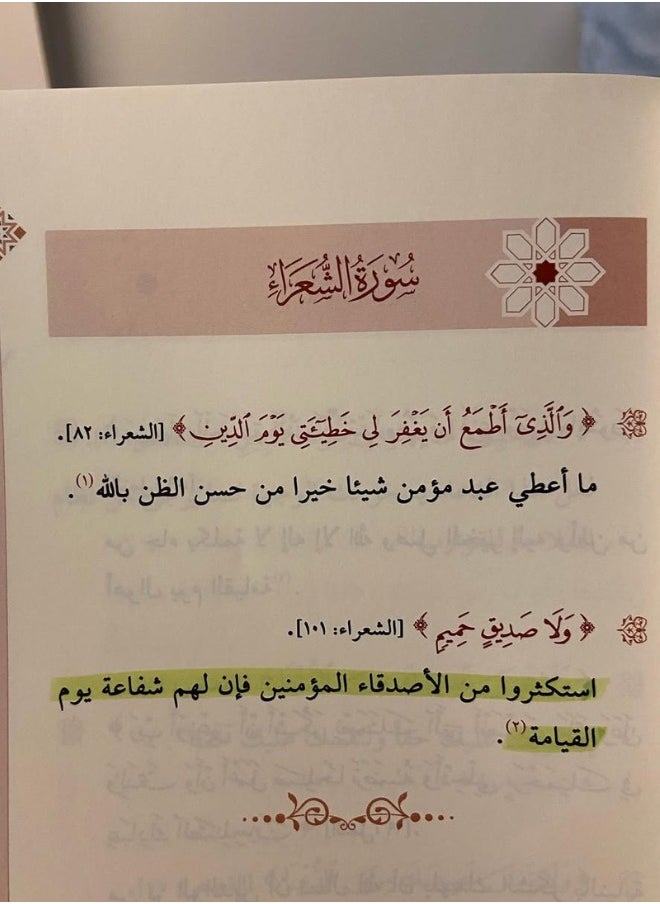 سُورَةُ الشُّعَرَاءِ
﴿ وَٱلَّذِىٓ أَطۡمَعُ أَن يَغۡفِرَ لِى خَطِيٓـَٔتِى يَوۡمَ ٱلدِّينِ ﴾ [الشعراء: ٨٢].
ما أعطي عبد مؤمن شيئا خيرا من حسن الظن بالله(١).
﴿ وَلَا صَدِيقٍ حَمِيمٍ ﴾ [الشعراء: ١٠١].
استكثروا من الأصدقاء المؤمنين فإن لهم شفاعة يوم
القيامة(٢).